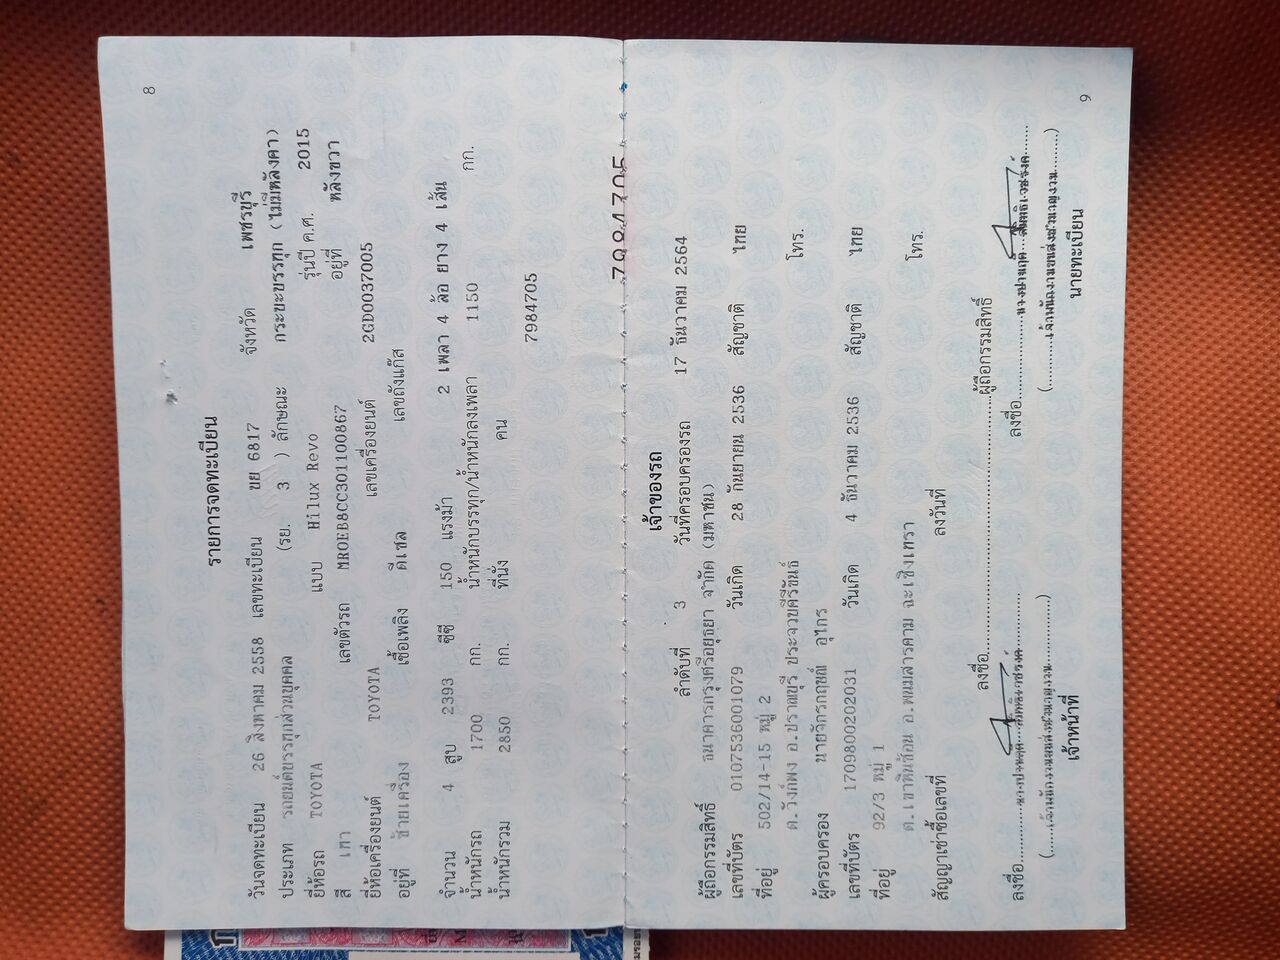 8
รายการจดทะเบียน
วันจดทะเบียน 26 สิงหาคม 2558 เลขทะเบียน ขย 6817 จังหวัด เพชรบุรี
ประเภท รถยนต์บรรทุกส่วนบุคคล (รย. 3 ) ลักษณะ กระบะบรรทุก (ไม่มีหลังคา)
ยี่ห้อรถ TOYOTA แบบ Hilux Revo รุ่นปี ค.ศ. 2015
สี เทา เลขตัวรถ MR0EB8CC301100867 อยู่ที่ หลังขวา
ยี่ห้อเครื่องยนต์ TOYOTA เลขเครื่องยนต์ 2GD0037005
อยู่ที่ ซ้ายเครื่อง เชื้อเพลิง ดีเซล เลขถังแก๊ส
จำนวน 4 สูบ 2393 ซีซี 150 แรงม้า 2 เพลา 4 ล้อ ยาง 4 เส้น
น้ำหนักรถ 1700 กก. น้ำหนักบรรทุก/น้ำหนักลงเพลา 1150 กก.
น้ำหนักรวม 2850 กก. ที่นั่ง คน
7984705
7984705
เจ้าของรถ
ลำดับที่ 3 วันที่ครอบครองรถ 17 ธันวาคม 2564
ผู้ถือกรรมสิทธิ์ ธนาคารกรุงศรีอยุธยา จำกัด (มหาชน)
เลขที่บัตร 0107536001079 วันเกิด 28 กันยายน 2536 สัญชาติ ไทย
ที่อยู่ 502/14-15 หมู่ 2
ต.วังก์พง อ.ปราณบุรี ประจวบคีรีขันธ์ โทร.
ผู้ครอบครอง นายจักรกฤษณ์ อุไกร
เลขที่บัตร 1709800202031 วันเกิด 4 ธันวาคม 2536 สัญชาติ ไทย
ที่อยู่ 92/3 หมู่ 1
ต.เขาหินซ้อน อ.พนมสารคาม ฉะเชิงเทรา โทร.
สัญญาเช่าซื้อเลขที่ ลงวันที่
ลงชื่อ ผู้ถือกรรมสิทธิ์
ลงชื่อ ลงชื่อ
เจ้าหน้าที่ นายทะเบียน
9